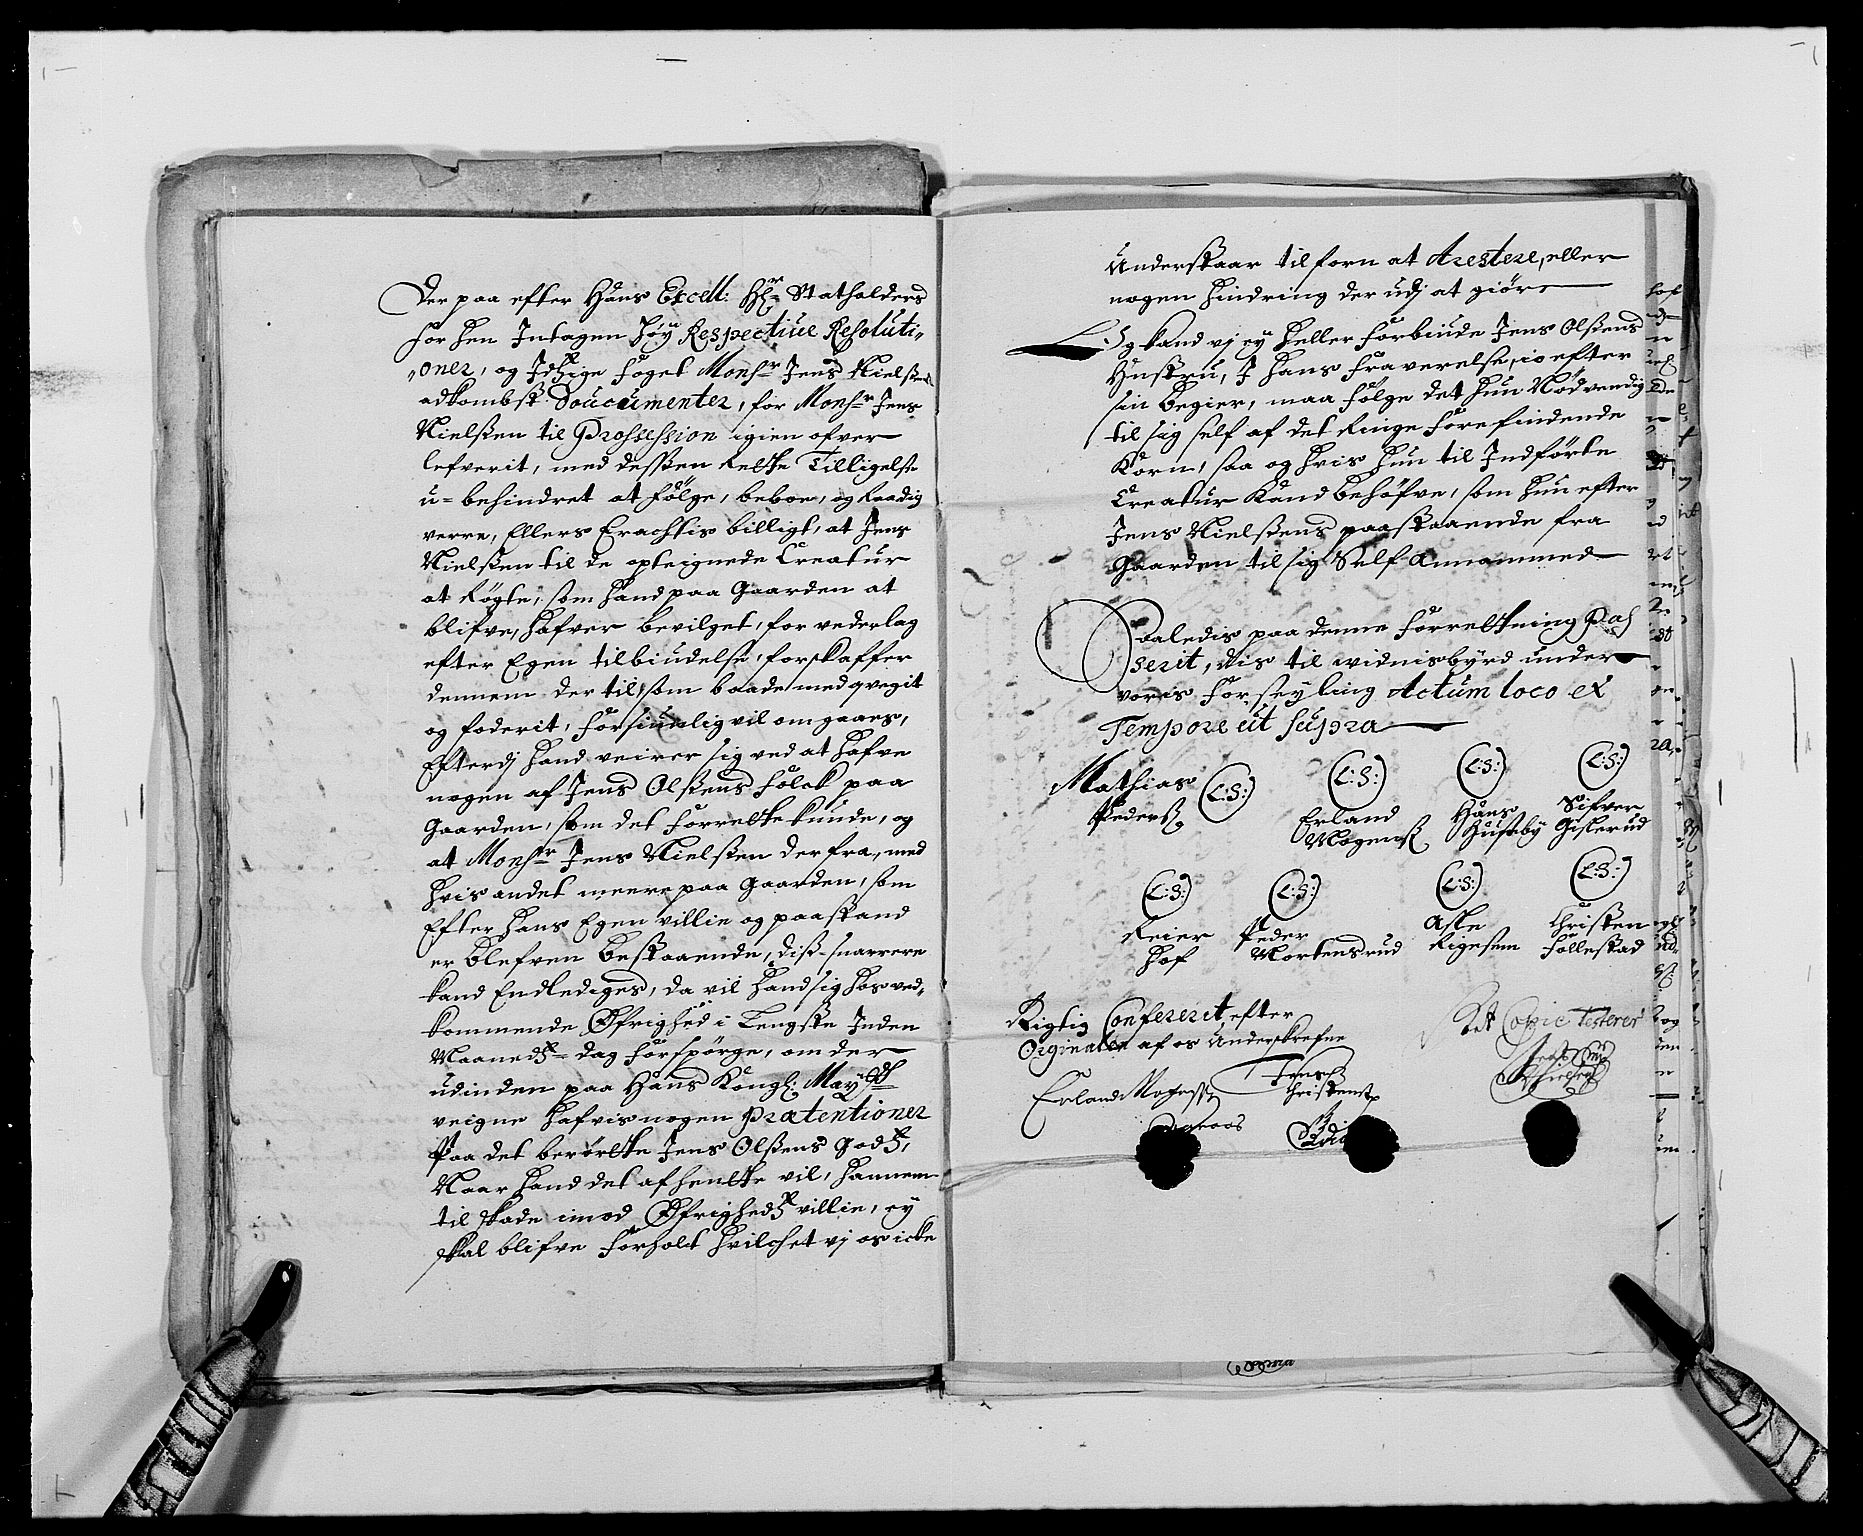 Der paa efter Hans Excell: Hr: Statholders
for hen Intagen høy Respective Resoluti„
„oner, og Itzige foget Monsr Jens Nielsens
adkombst Doucumenter, for Monsr Jens
Nielsen til Prossession igien ofver
lefverit, med dessen Rette Tilligelse
u-behindret at følge, beboe, og Raadig
verre, Ellers Erachtis billigt, at Jens
Nielsen til de opteignede Creatur
at Røgte, som hand paa Gaarden at
blifve, hafver bevilget, for vederlag
efter Egen tilbindelse, forskaffer
dennem der til, som baade med qvegit
og foderit, forsiunlig vil omgaaes,
Efterdj hand veirer sig ved at hafve
nogen af Jens Olsens folck paa
Gaarden, som det forrette kunde, og
at Monsr Jens Nielsen der fra, med
hvis andet meere paa Gaarden, som
Efter hans Egen villie og paastand
er blefven bestaaende, diss-snarrere
kand Endlediges, da vil hand sig hos ved„
kommende Øfrighed i Lengste Inden
Maanedtz dag forspørge, om der
udinden paa Hans Kongl: Maytz
veigne hafvis nogen Prætentioner
Paa det berørte Jens Olsens godtz,
Naar hand det afhente vil, hannem
til skade imod Øfrighedtz villie, ey
skal blifve forholt hvilchet vj os icke
Understaar tilforn at Arestere, eller
nogen hindring der udj at giøre
Og kand vj ey heller forbiude Jens Olsens
Hustru, I hans fraverelse, io efter
sin begier, maa følge det hun Nødvendig
til sig self af det Ringe forefindende
Korn, saa og hvis hun til Indførte
Creatur Kand behøfve, som hun efter
Jens Nielsens paastaaende fra
Gaarden til sig Self Annammed
Saaledis paa denne forretning Pas
serit, dis til widnisbyrd under
voris forseyling Actum loco et
Tempore ut supra
Mathias Peders (L:S:)
(L:S:) Erland Mogens
(L:S:) Hans Huseby
(L:S:) Sifver Gislerud
(L:S:) Reier Hof
(L:S:) Peder Mortensrud
(L:S:) Aste Rigesem
(L:S:) Christen Follestad
Rigtig Confererit efter
Orginalen af os Underskrefne
Erland Mogens
Jens Christens
Ret Copie Testerer
Jens Nielsen